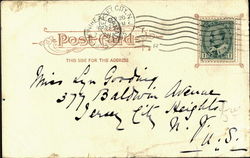 Post Card
THIS SIDE FOR THE ADDRESS
Miss Lyn Gooding
377 Baldwin Avenue
Jersey City Heights
N. J.
U. S.